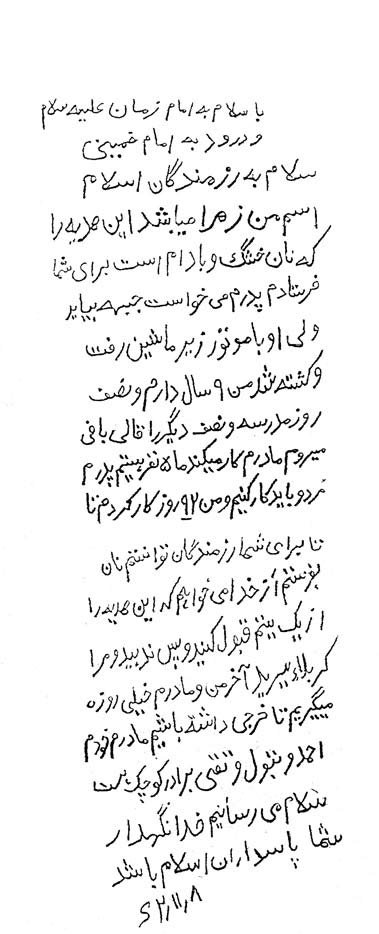 با سلام به امام زمان علیه سلام
و درود به امام خمینی
سلام به رزمندگان اسلام
اسم من زهرا میباشد این هدیه را
که نان خشک و بادام است برای شما
فرستادم پدرم می خواست جبهه بیاید
ولی او با موتور زیر ماشین رفت
و کشته شد من ۹ سال دارم و نصف
روز مدرسه و نصف دیگر را قالی بافی
میروم مادرم کار میکند ما ۵ نفر هستیم پدرم
مرد و باید کار کنیم و من ۹۲ روز کار کردم تا
تا برای شما رزمندگان توانستم نان
بفرستم از خدا می خواهم که این هدیه را
از یک یتیم قبول کنید و پس ندهید و مرا
کربلاء ببرید آخر من و مادرم خیلی روزه
میگیریم تا خرجی داشته باشیم مادرم خودم
احمد و بتول و تقی برادر کوچک است
سلام می رسانیم خدا نگهدار
شما پاسداران اسلام باشد
۶۲/۱۱/۸